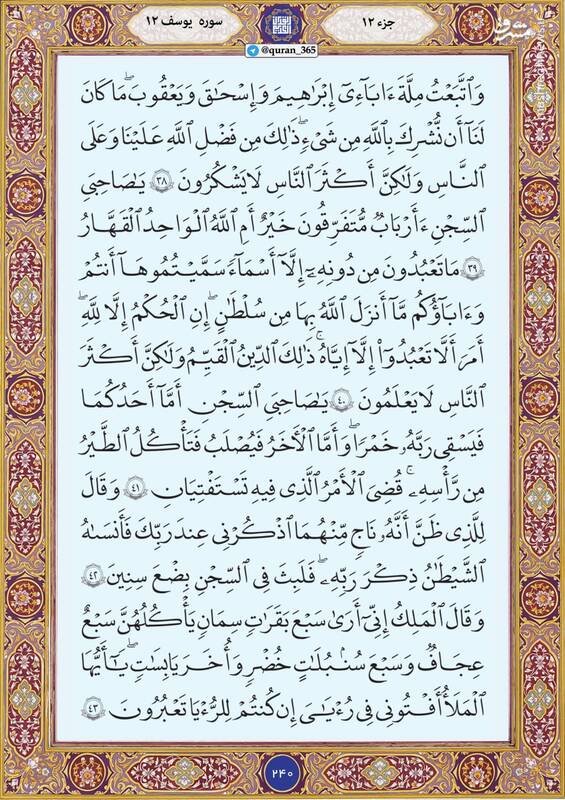 جزء ۱۲
سوره یوسف ۱۲
@quran_365
مشرق
وَٱتَّبَعْتُ مِلَّةَ ءَابَآءِىٓ إِبْرَٰهِيمَ وَإِسْحَٰقَ وَيَعْقُوبَ ۚ مَا كَانَ
لَنَآ أَن نُّشْرِكَ بِٱللَّهِ مِن شَىْءٍ ۚ ذَٰلِكَ مِن فَضْلِ ٱللَّهِ عَلَيْنَا وَعَلَى
ٱلنَّاسِ وَلَٰكِنَّ أَكْثَرَ ٱلنَّاسِ لَا يَشْكُرُونَ ۳۸ يَٰصَاحِبَىِ
ٱلسِّجْنِ ءَأَرْبَابٌ مُّتَفَرِّقُونَ خَيْرٌ أَمِ ٱللَّهُ ٱلْوَٰحِدُ ٱلْقَهَّارُ
۳۹ مَا تَعْبُدُونَ مِن دُونِهِۦٓ إِلَّآ أَسْمَآءً سَمَّيْتُمُوهَآ أَنتُمْ
وَءَابَآؤُكُم مَّآ أَنزَلَ ٱللَّهُ بِهَا مِن سُلْطَٰنٍ ۚ إِنِ ٱلْحُكْمُ إِلَّا لِلَّهِ ۚ
أَمَرَ أَلَّا تَعْبُدُوٓا۟ إِلَّآ إِيَّاهُ ۚ ذَٰلِكَ ٱلدِّينُ ٱلْقَيِّمُ وَلَٰكِنَّ أَكْثَرَ
ٱلنَّاسِ لَا يَعْلَمُونَ ۴۰ يَٰصَاحِبَىِ ٱلسِّجْنِ أَمَّآ أَحَدُكُمَا
فَيَسْقِى رَبَّهُۥ خَمْرًا ۖ وَأَمَّا ٱلْءَاخَرُ فَيُصْلَبُ فَتَأْكُلُ ٱلطَّيْرُ
مِن رَّأْسِهِۦ ۚ قُضِىَ ٱلْأَمْرُ ٱلَّذِى فِيهِ تَسْتَفْتِيَانِ ۴۱ وَقَالَ
لِلَّذِى ظَنَّ أَنَّهُۥ نَاجٍ مِّنْهُمَا ٱذْكُرْنِى عِندَ رَبِّكَ فَأَنسَىٰهُ
ٱلشَّيْطَٰنُ ذِكْرَ رَبِّهِۦ فَلَبِثَ فِى ٱلسِّجْنِ بِضْعَ سِنِينَ ۴۲
وَقَالَ ٱلْمَلِكُ إِنِّىٓ أَرَىٰ سَبْعَ بَقَرَٰتٍ سِمَانٍ يَأْكُلُهُنَّ سَبْعٌ
عِجَافٌ وَسَبْعَ سُنۢبُلَٰتٍ خُضْرٍ وَأُخَرَ يَابِسَٰتٍ ۖ يَٰٓأَيُّهَا
ٱلْمَلَأُ أَفْتُونِى فِى رُءْيَٰىَ إِن كُنتُمْ لِلرُّءْيَا تَعْبُرُونَ ۴۳
۲۴۰